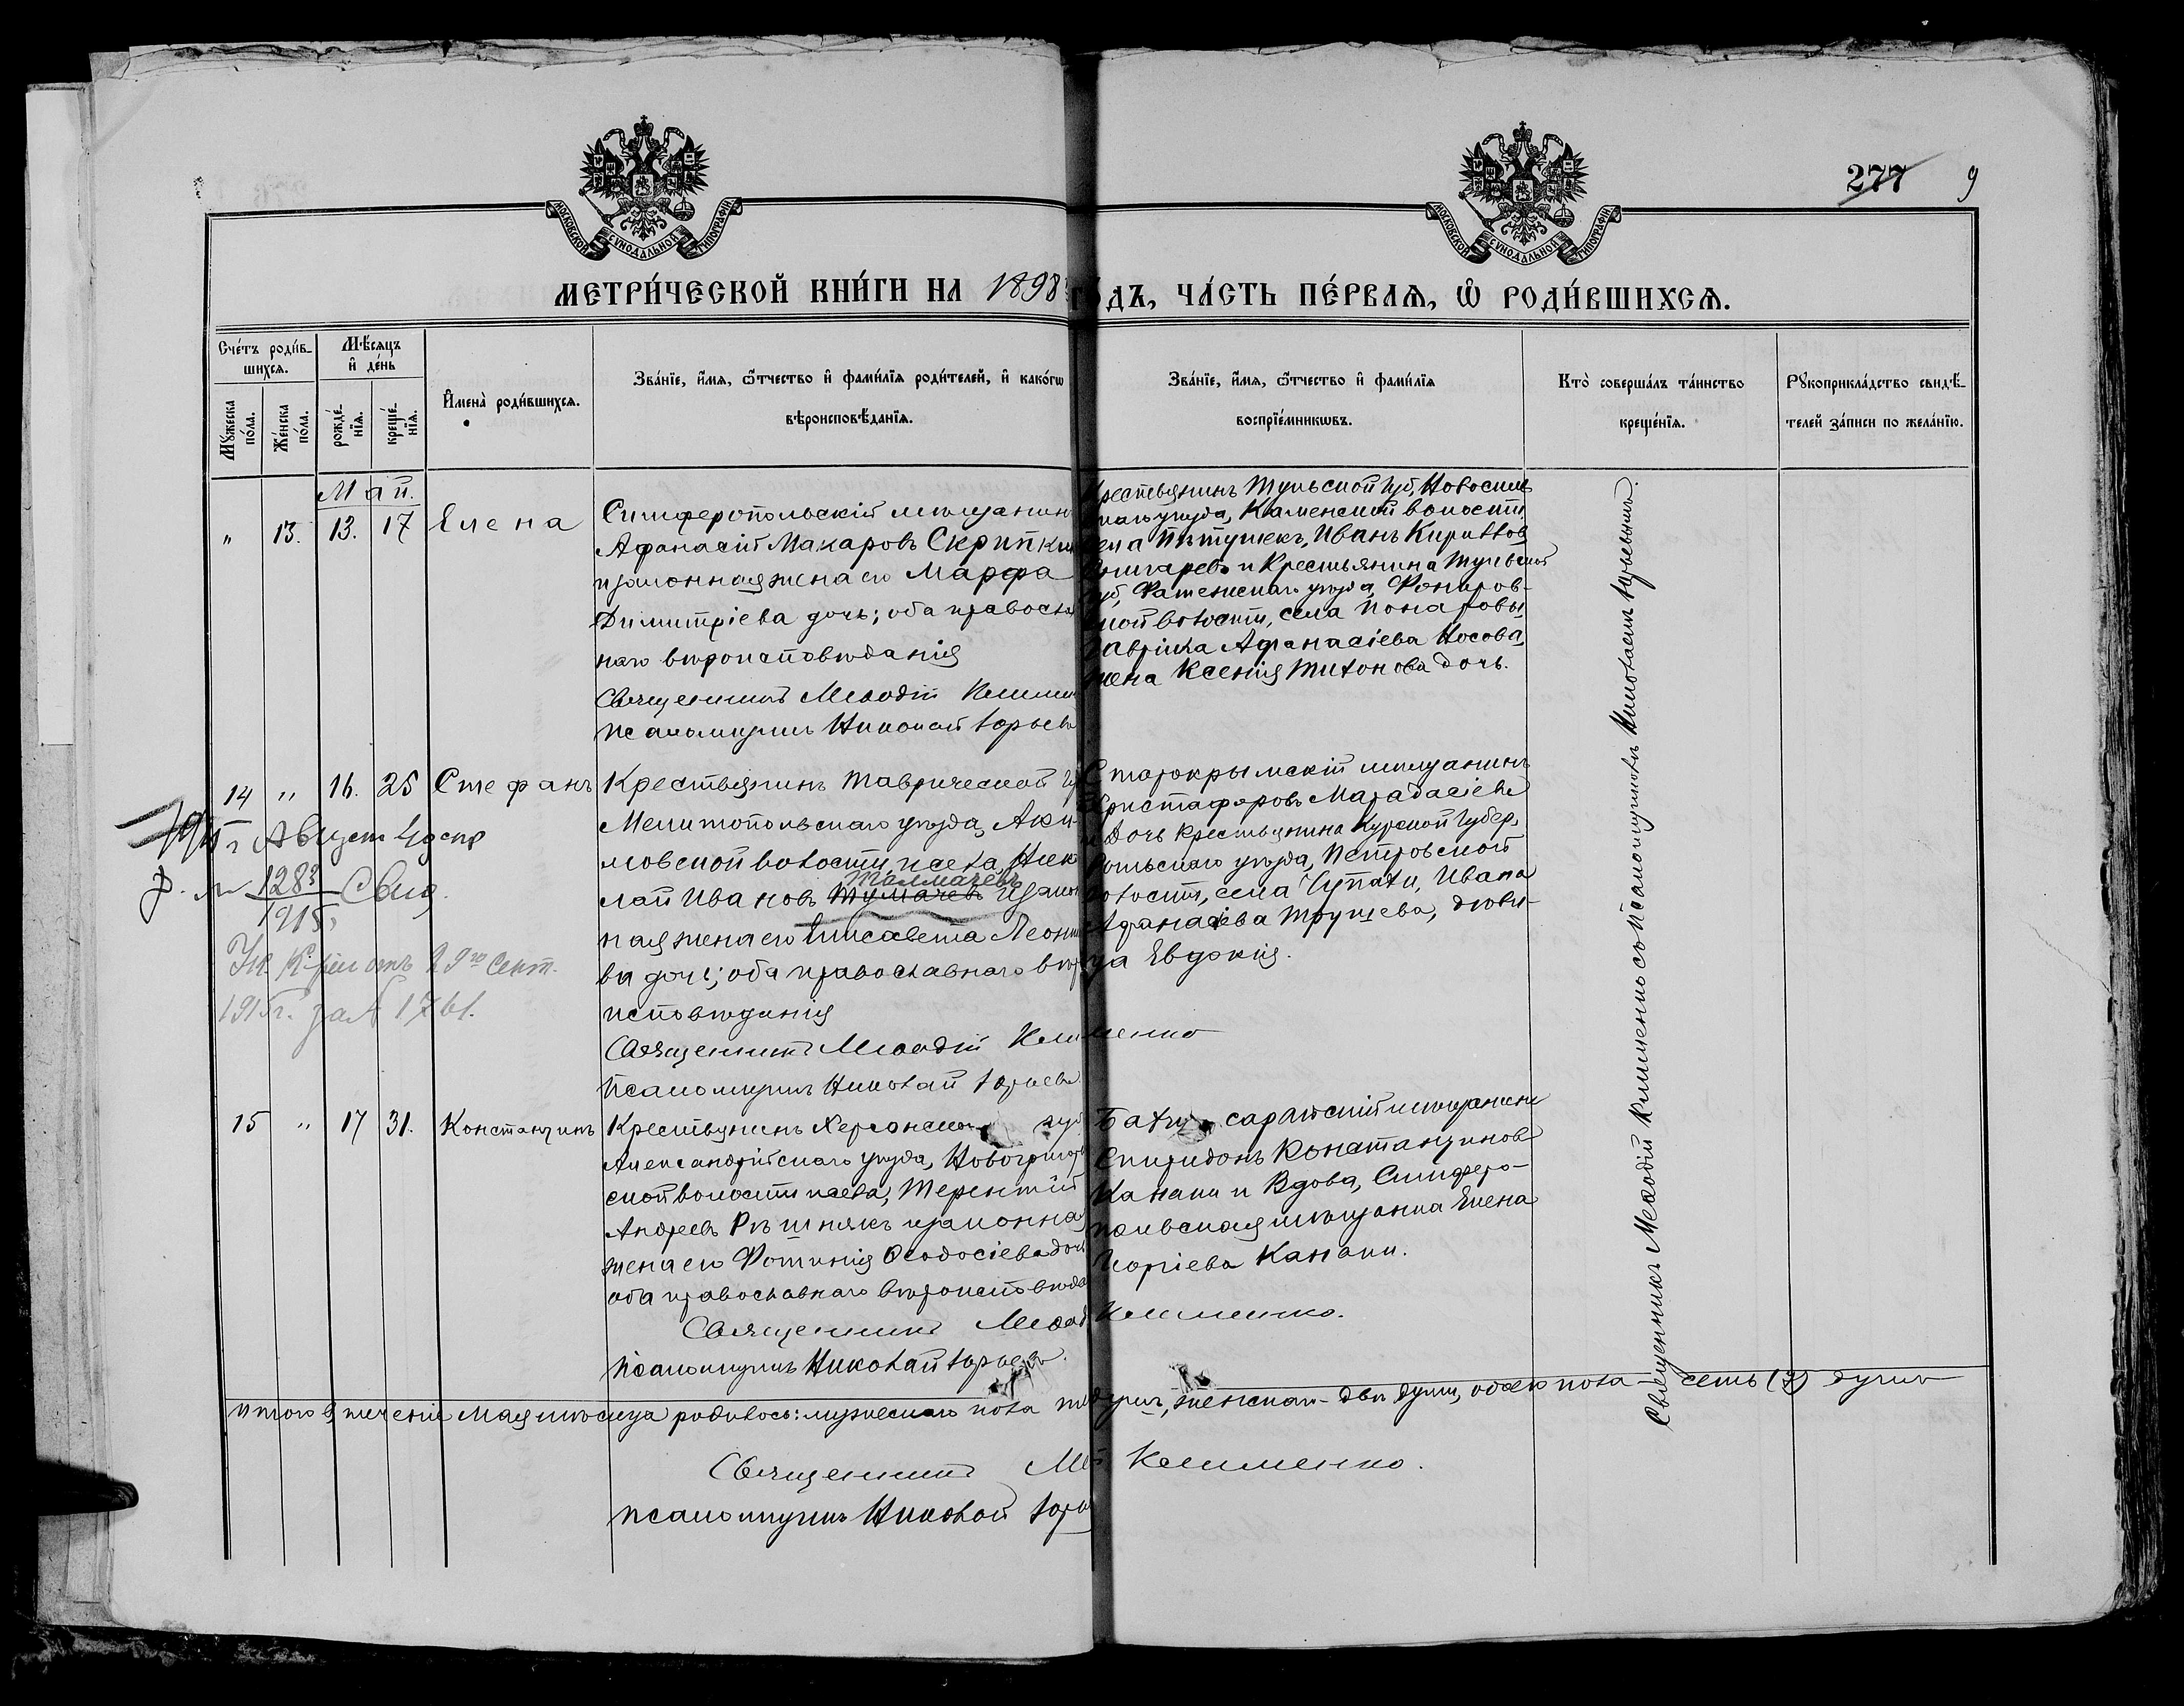 МОСКОВСКОЙ СѴНОДАЛЬНОЙ ТИПОГРАФІИ
МОСКОВСКОЙ СѴНОДАЛЬНОЙ ТИПОГРАФІИ
277 9
МЕТРИ́ЧЕСКОЙ КНИ́ГИ НА 1898 ГО́ДЪ, ЧА́СТЬ ПЕ́РВАѦ, Ѽ РОДИ́ВШИХСѦ.
Сче́тъ роди́в-
шихсѧ.
Мꙋжеска по́ла.
Же́нска по́ла.
Мѣ́сѧцъ и҆ де́нь
рожде́-
нїѧ.
креще́-
нїѧ.
И҆мена̀ роди́вшихсѧ.
Зва́нїе, и҆́мѧ, ѻ҆́тчество и҆ фами́лїѧ роди́телей, и҆ како́гѡ
вѣроисповѣ́данїѧ.
Зва́нїе, и҆́мѧ, ѻ҆́тчество и҆ фами́лїѧ
воспрїе́мникѡвъ.
Кто̀ соверша́лъ та́инство
креще́нїѧ.
Рꙋкоприкла́дство свидѣ́-
телей за́писи по жела́нїю.
Май.
" 13. 13. 17 Елена
Симферопольскій мѣщанинъ
Афанасій Макаровъ Скрипкин
и законная жена его Марфа
Димитріева дочь; оба православ
наго вѣроисповѣданія
Священникъ Меѳодій Клименко
Псаломщикъ Николай Юрьевъ
Крестьянинъ Тульской губ, Новосиль
скаго уѣзда, Каменской волости,
села Пѣтушекъ, Иванъ Кириллов
и Крестьянина Тульской
губ, уѣзда,
ской волости, села
Гавріила Афанасіева Носова
жена Ксенія Тихонова дочь.
14 " 16. 25 Стефанъ
Крестьянинъ Таврической гу
Мелитопольскаго уѣзда, Аки-
мовской волости и села, Нико
Толмачевъ
лай Ивановъ Тумачевъ и закон
ная жена его Елисавета Леонть
ва дочь; оба православнаго вѣро
исповѣданія
Священникъ Меѳодій Клименко
Псаломщикъ Николай Юрьевъ
Старокрымскій мѣщанинъ
Христофоръ
и Дочь крестьянина Курской губер,
уѣзда, Петровской
волости, села Чупахи, Ивана
Афанасіева дѣви-
ца Евдокія.
Август
128?
1915
Свид.
29го Сент.
1915г. за № 1761.
15 " 17 31. Константинъ
Крестьянинъ Херсонской губ
Александрійскаго уѣзда, Новогригорь
ской волости и села, Терентій
Андреевъ Рѣшнякъ и законная
жена его Фотинія Ѳеодосіева дочь
оба православнаго вѣроисповѣда
Священникъ Меѳод Клименко.
Псаломщикъ Николай Юрьевъ.
Бахчисарайскій мѣщанинъ
Спиридонъ Константиновъ
Канаки и Вдова, Симферо-
польская мѣщанка Елена
Георгіева Канаки.
Священникъ Меѳодій Клименко съ псаломщикомъ Николаемъ Юрьевымъ.
Итого въ теченіе Мая мѣсяца родилось: мужескаго пола пять душъ, женскаго - двѣ души, обоего пола - семь (7) душъ
Священникъ Меѳ Клименко.
Псаломщикъ Николай Юрьев